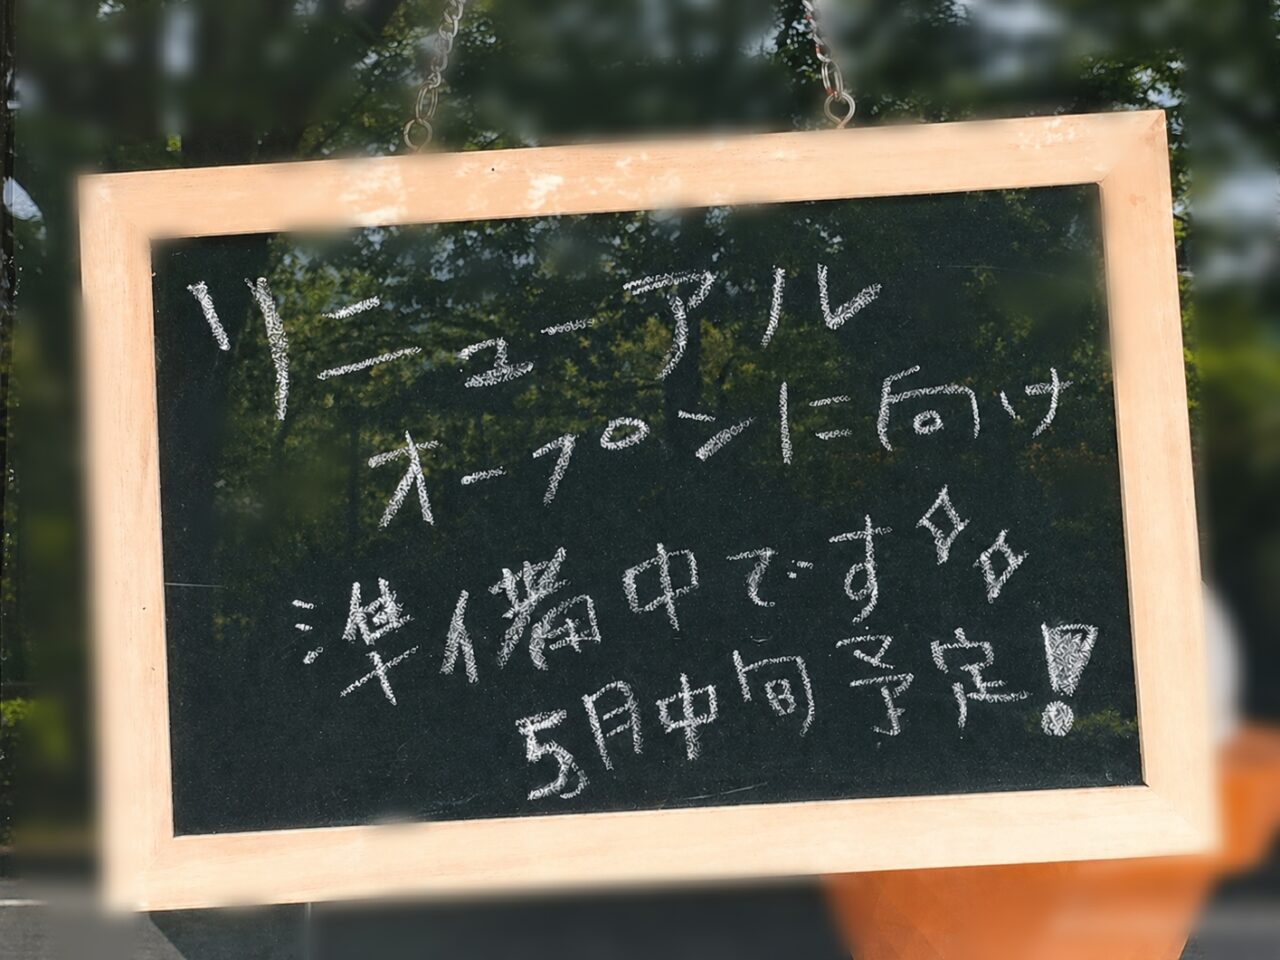 リニューアル
オープンに向け
準備中です
5月中旬予定!